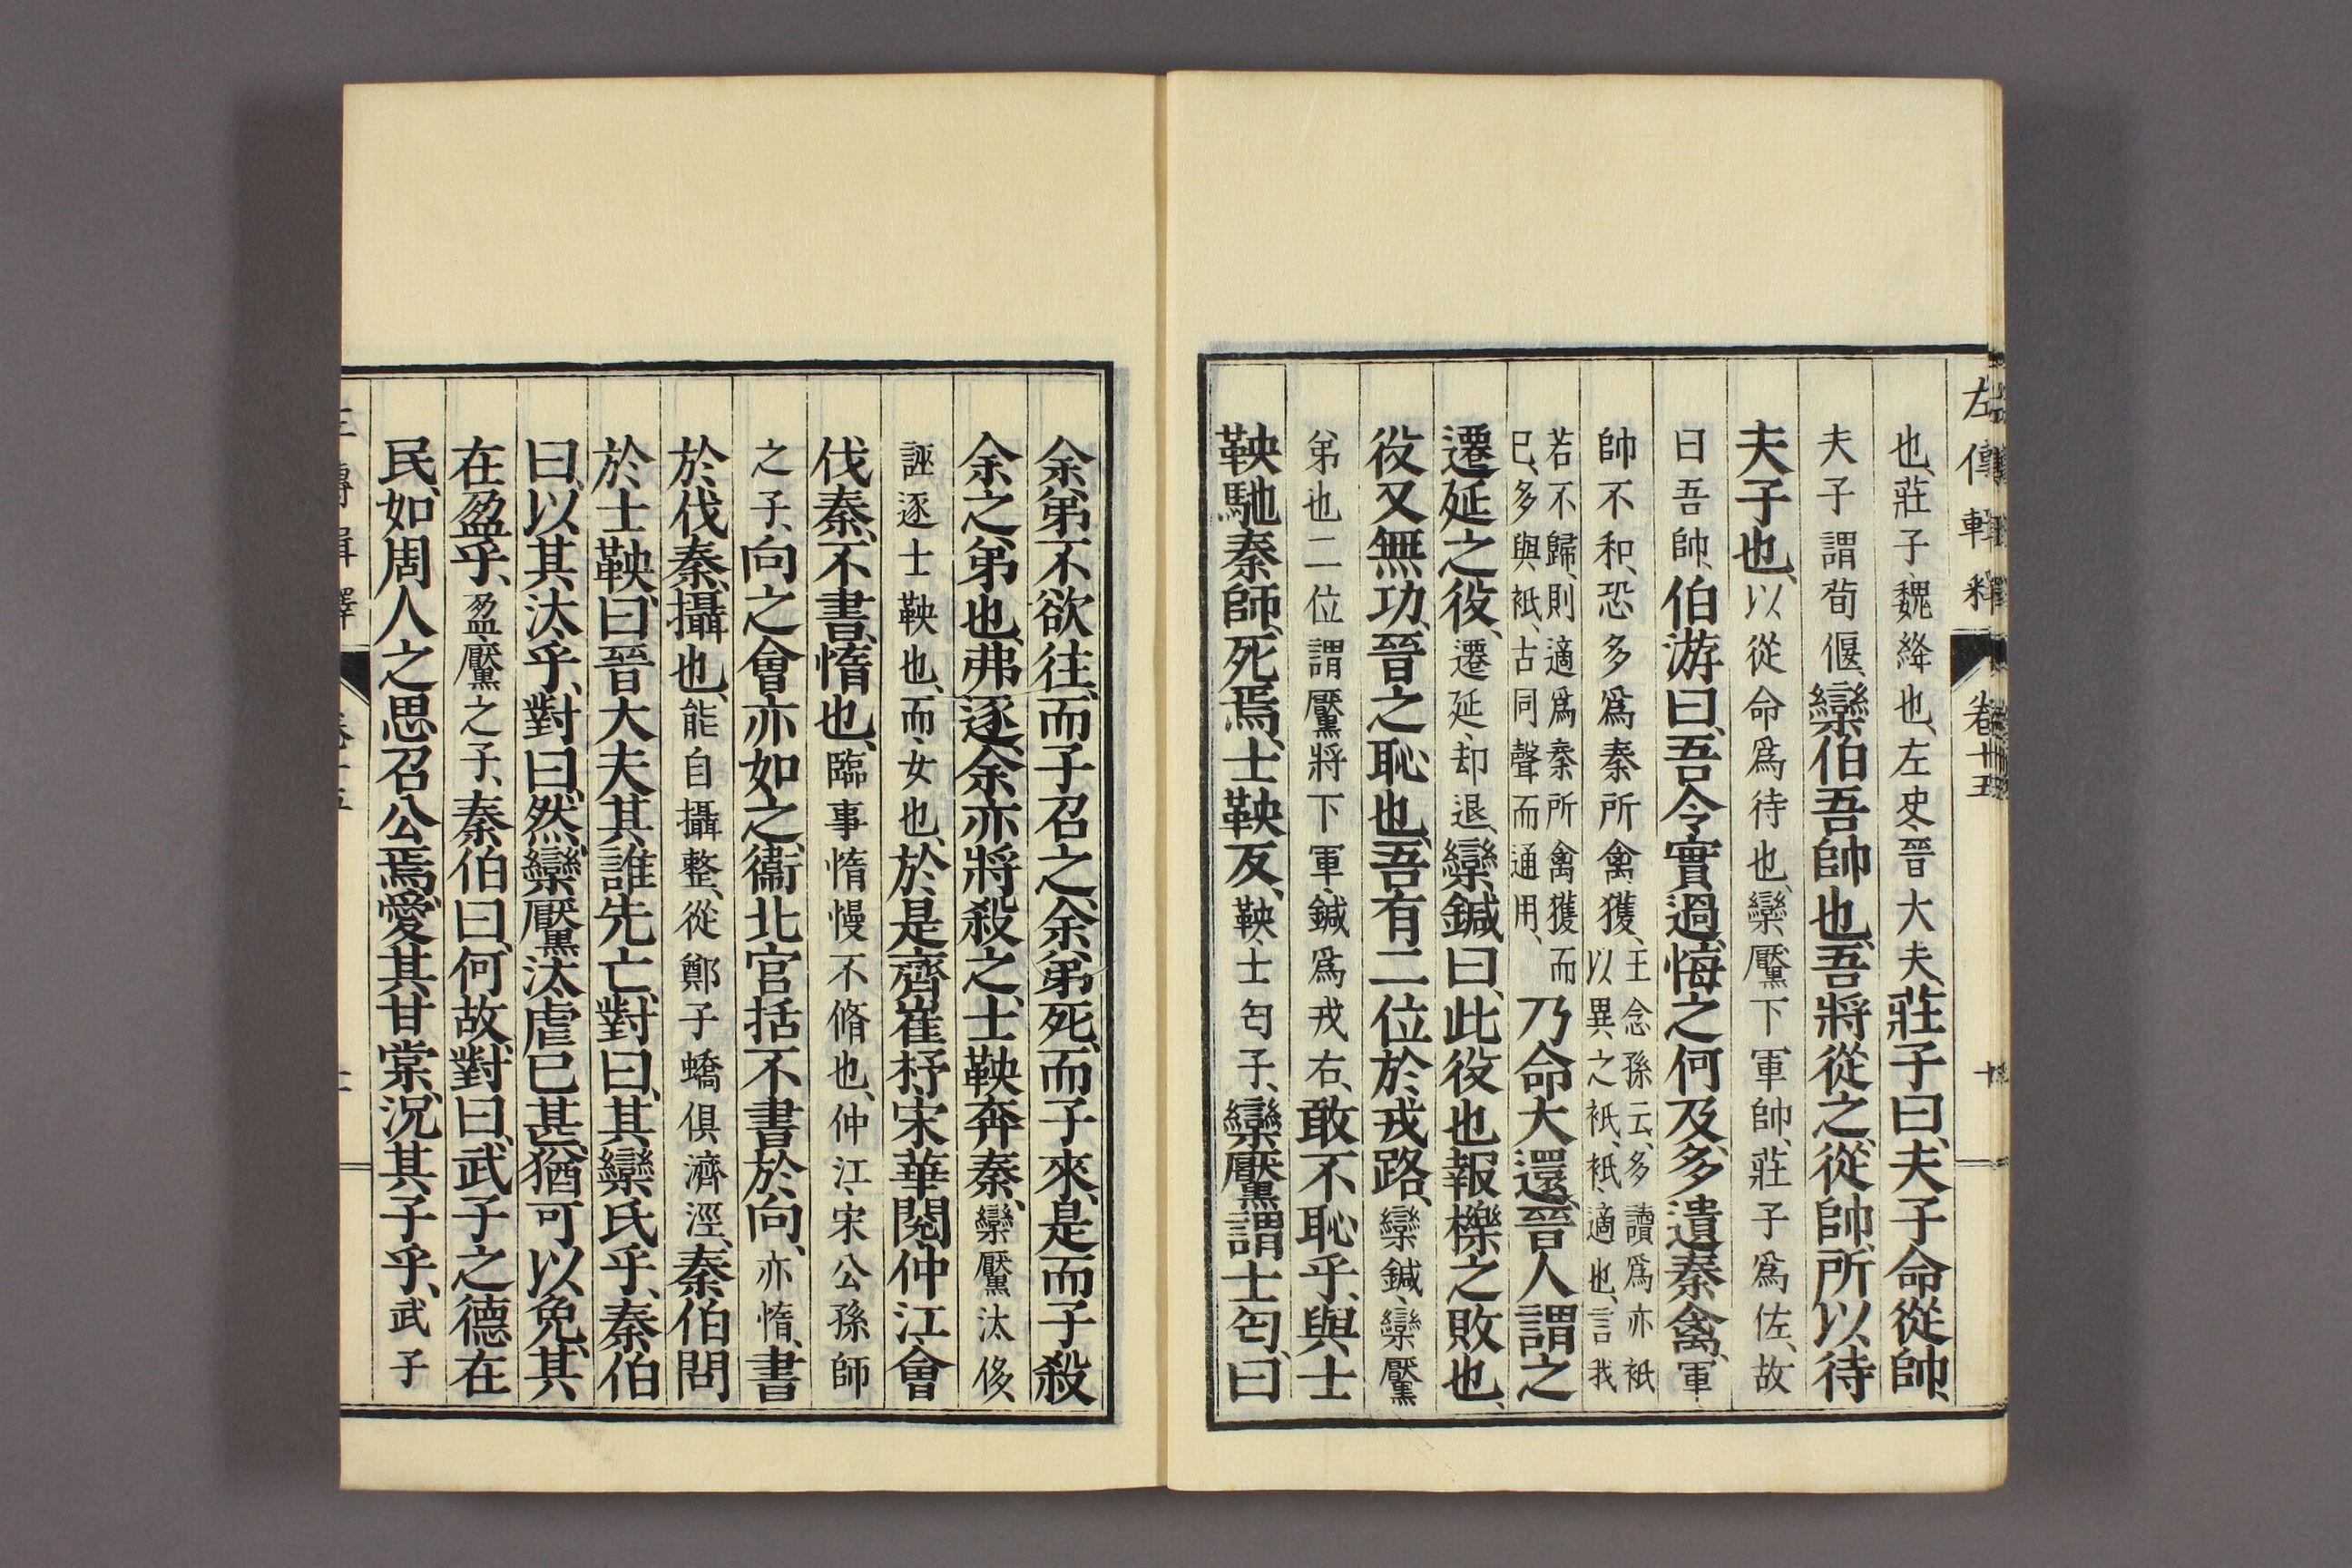 左傳輯釋 卷十五
也、莊子、魏絳也、左史、晉大夫、莊子曰、夫子命從帥、
夫子謂荀偃、欒伯吾帥也、吾將從之、從帥、所以待
夫子也、以從命爲待也、欒黶下軍帥、莊子爲佐、故
曰吾帥、伯游曰、吾令實過、悔之何及、多遺秦禽、軍
帥不和、恐多爲秦所禽獲、王念孫云、多讀爲亦祇
以異之祇、祇、適也、言我
若不歸、則適爲秦所禽獲而
已、多與祇、古同聲而通用、乃命大還、晉人謂之
遷延之役、遷延、却退、欒鍼曰、此役也報櫟之敗也、
役又無功、晉之恥也、吾有二位於戎路、欒鍼、欒黶
弟也二位謂黶將下軍、鍼爲戎右、敢不恥乎、與士
鞅馳秦師、死焉、士鞅反、鞅、士匄子、欒黶謂士匄、曰
余弟不欲往、而子召之、余弟死、而子來、是而子殺
余之弟也、弗逐、余亦將殺之、士鞅奔秦、欒黶汰侈、
誣逐士鞅也、而、女也、於是齊崔杼宋華閱仲江、會
伐秦、不書、惰也、臨事惰慢不脩也、仲江、宋公孫師
之子、向之會亦如之、衞北宮括不書於向、亦惰、書
於伐秦、攝也、能自攝整、從鄭子蟜俱濟涇、秦伯問
於士鞅、曰晉大夫其誰先亡、對曰、其欒氏乎、秦伯
曰、以其汰乎、對曰、然、欒黶汰虐已甚、猶可以免、其
在盈乎、盈、黶之子、秦伯曰、何故、對曰、武子之德在
民、如周人之思召公焉、愛其甘棠、況其子乎、武子